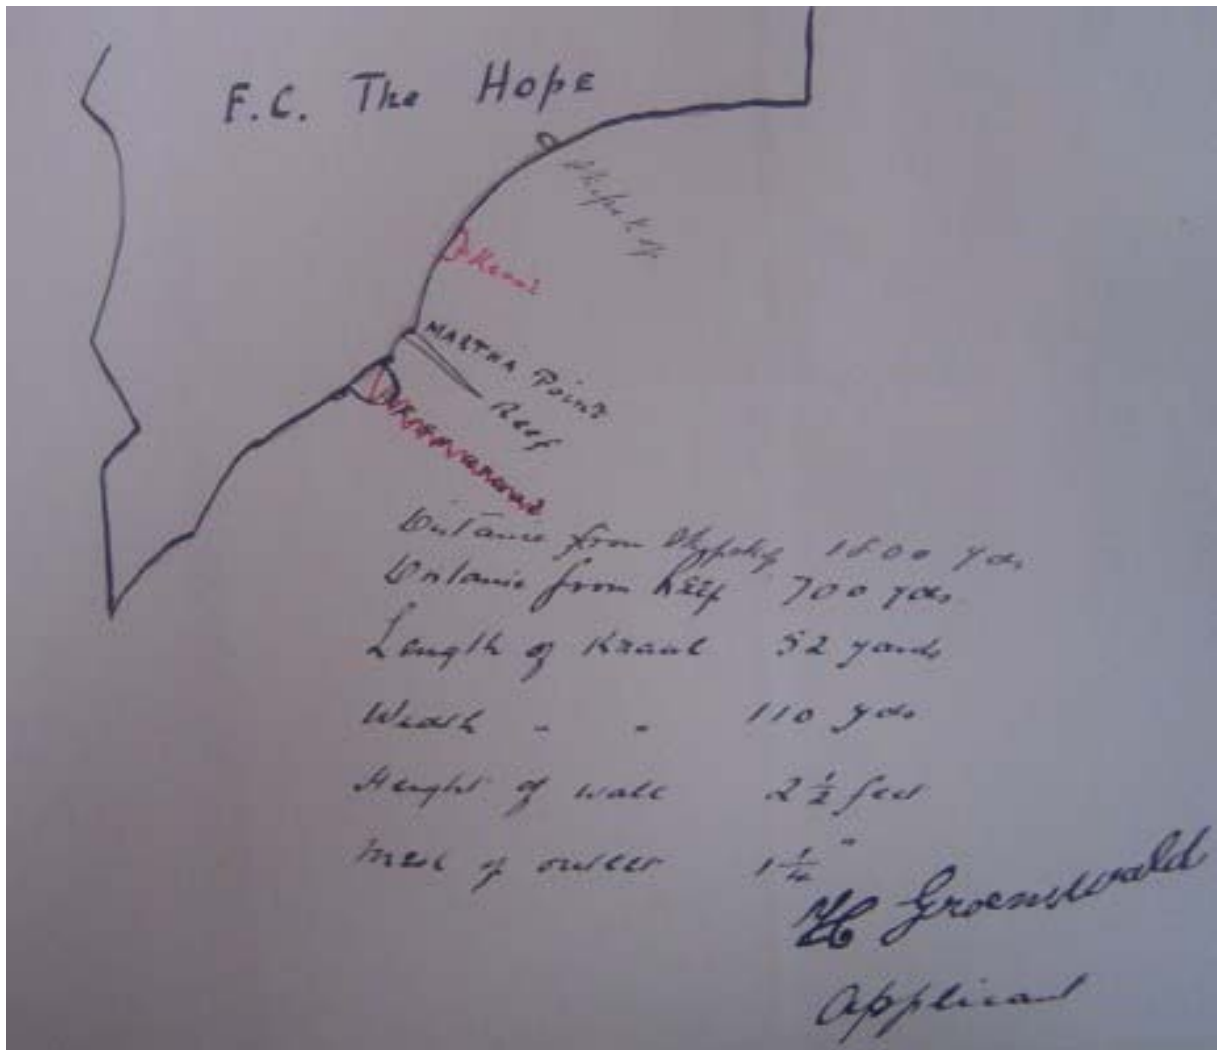 F.C. The Hope
Skipskop
Kraal
MARTHA Point
Reef
Distance from Skipskop 1800 yds
Distance from Reef 700 yds
Length of Kraal 52 yards
Width " " 110 yds
Height of wall 2 1/2 feet
Mesh of outlet 1 1/4 "
HC Groenewald
Applicant